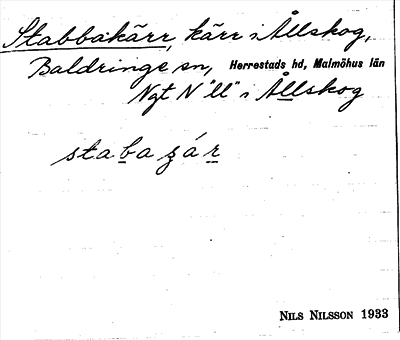 Stabbakärr, kärr i Ållskog,
Baldringe sn, Herrestads hd, Malmöhus län
Ngt N "ll" i Ållskog
staba ʒár
NILS NILSSON 1933